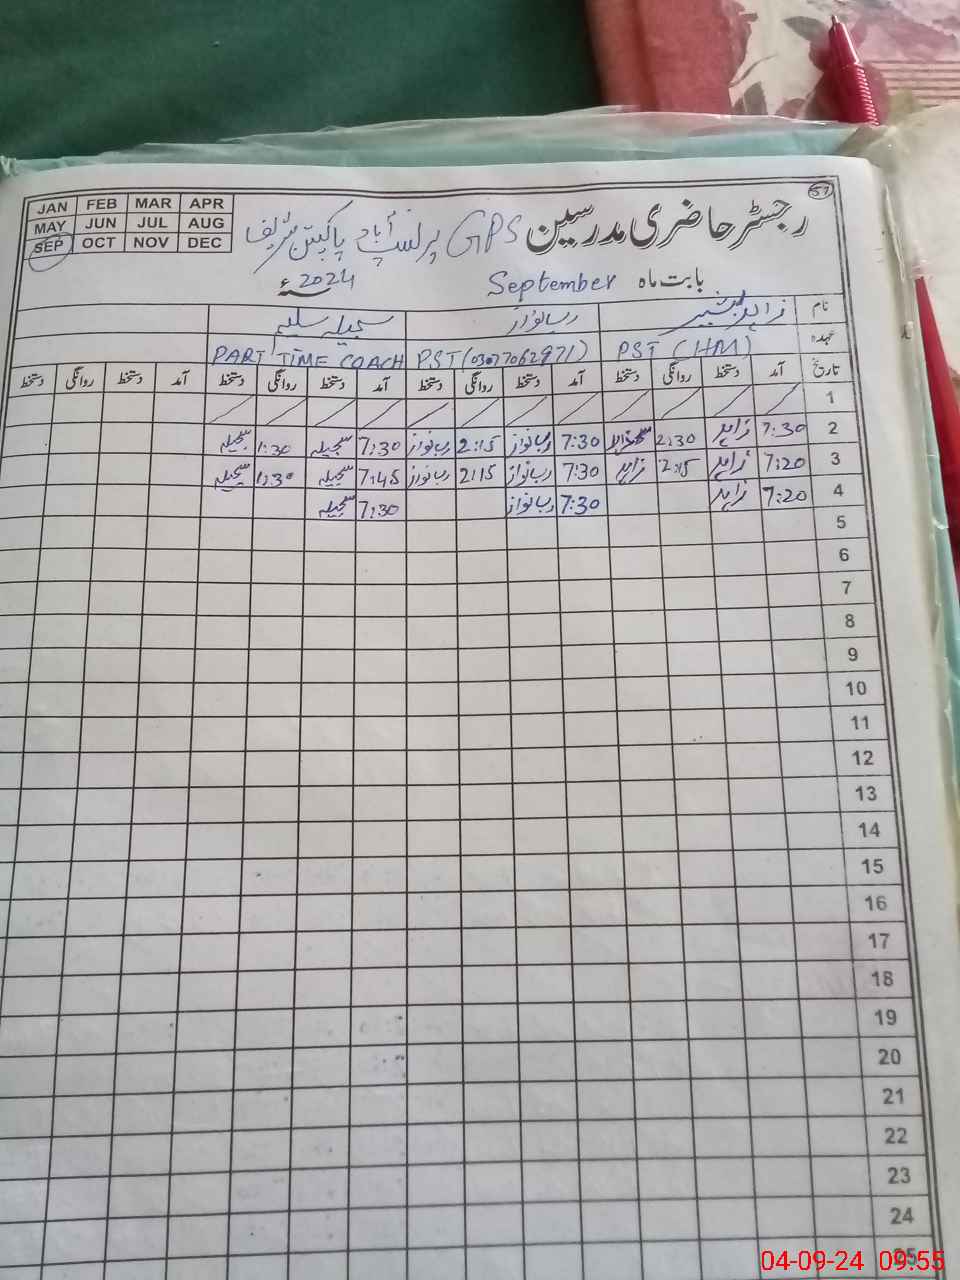 JAN FEB MAR APR
MAY JUN JUL AUG
SEP OCT NOV DEC
57
رجسٹر حاضری مدرسین GPS پاکپتن شریف
بابت ماہ September 2024ء
نام زاہد بشیر ربنواز سجیلہ سلیم
عہدہ PST (HM) PST (03077062971) PART TIME COACH
تاریخ آمد دستخط روانگی دستخط آمد دستخط روانگی دستخط آمد دستخط روانگی دستخط آمد دستخط روانگی دستخط
1
2 7:30 زاہد 2:30 زاہد 7:30 ربنواز 2:15 ربنواز 7:30 سجیلہ 1:30 سجیلہ
3 7:20 زاہد 2:15 زاہد 7:30 ربنواز 2:15 ربنواز 7:45 سجیلہ 1:30 سجیلہ
4 7:20 زاہد 7:30 ربنواز 7:30 سجیلہ
5
6
7
8
9
10
11
12
13
14
15
16
17
18
19
20
21
22
23
24
25
04-09-24 09:55